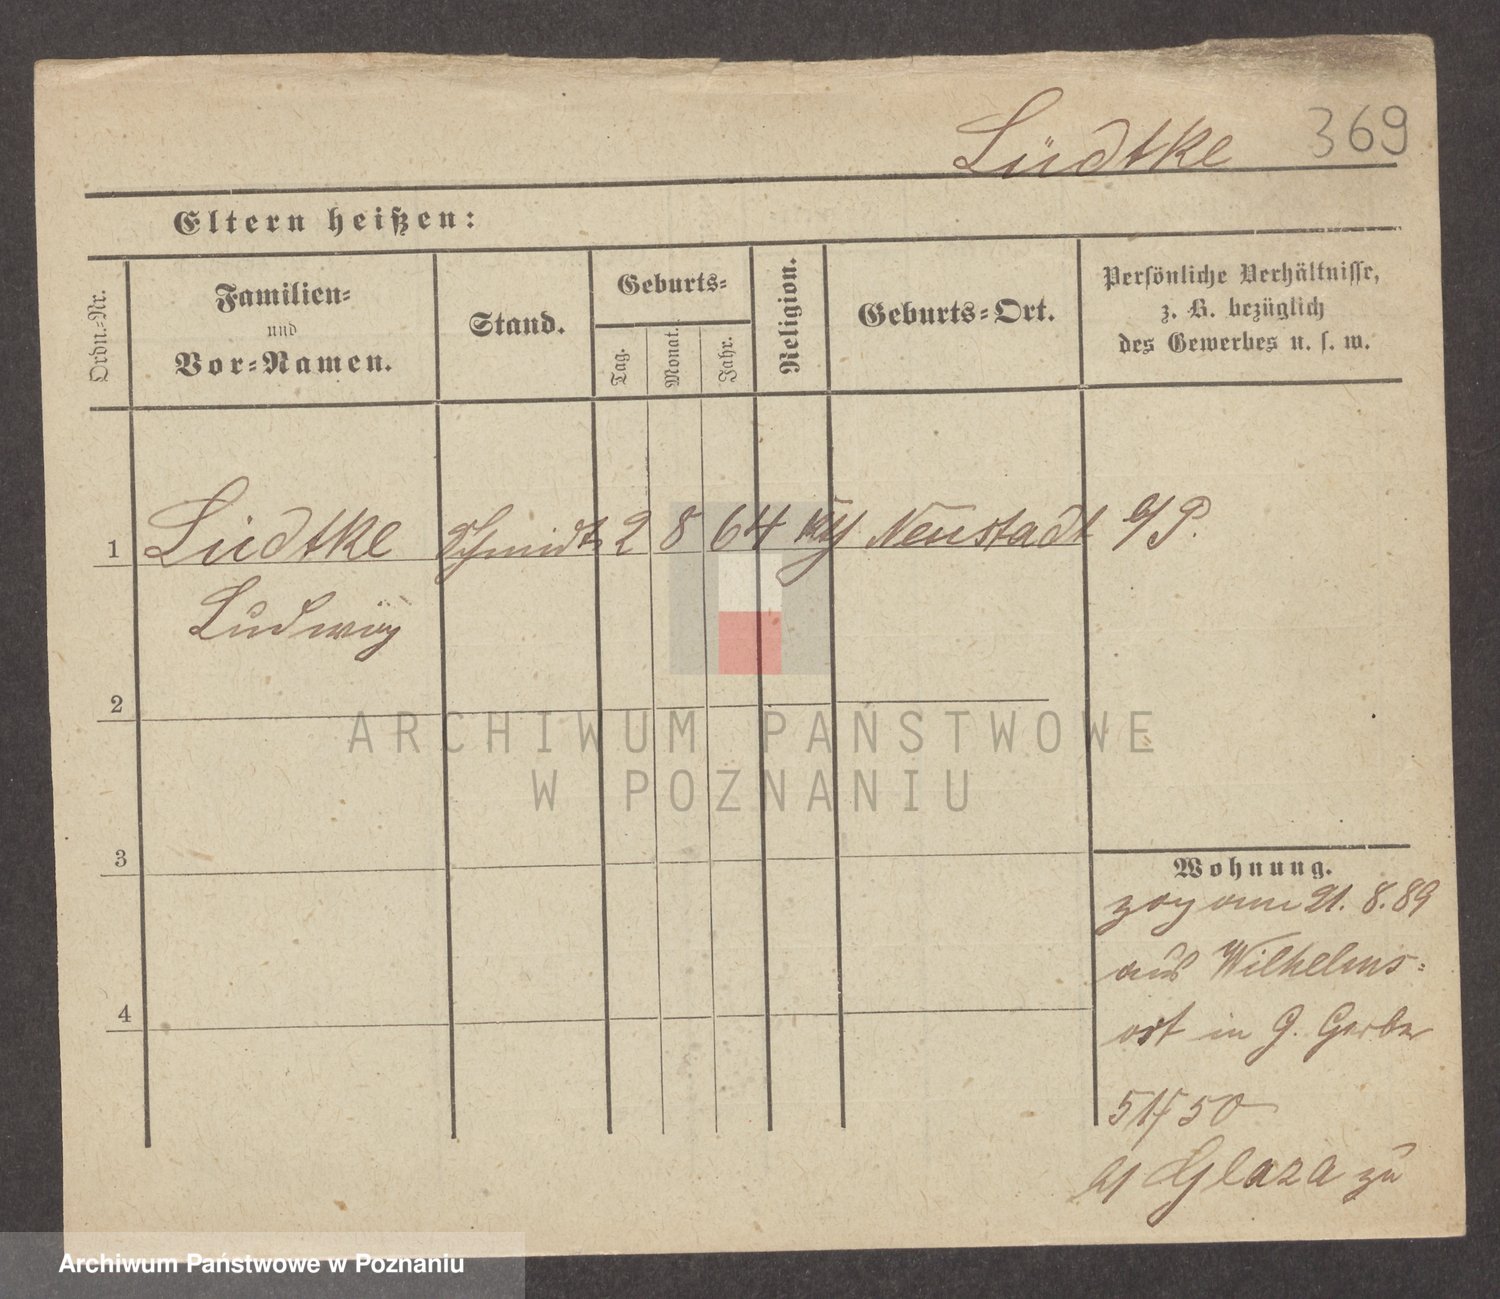 Lüdtke 369
Eltern heißen:
Ordn.-Nr.
Familien-
und
Vor-Namen.
Stand.
Geburts-
Tag.
Monat.
Jahr.
Religion.
Geburts-Ort.
Persönliche Verhältnisse,
z. B. bezüglich
des Gewerbes u. s. w.
1 Lüdtke Schmidt 2 8 64 Neustadt a/P.
Ludwig
2
3
4
Wohnung.
zog am 21. 8.89
aus Wilhelms-
ort in G. Gerber
51/50
b/ Glaza zu
ARCHIWUM PAŃSTWOWE
W POZNANIU
Archiwum Państwowe w Poznaniu